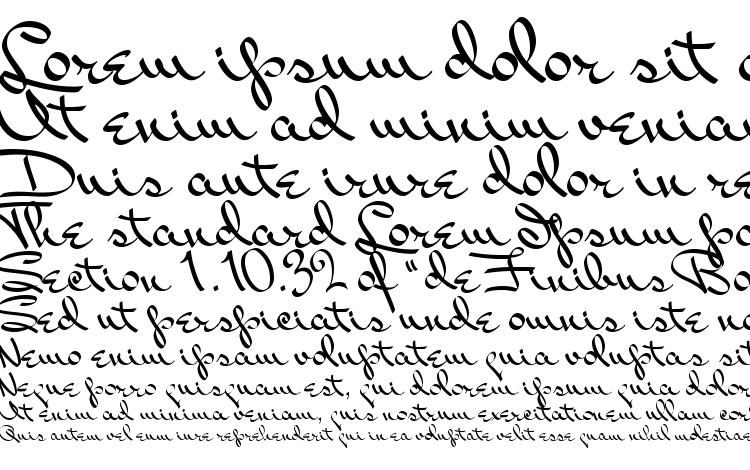 Lorem ipsum dolor sit a
Ut enim ad minim veniam
Duis aute irure dolor in re
The standard Lorem Ipsum pa
Section 1.10.32 of "de Finibus Bo
Sed ut perspiciatis unde omnis iste na
Nemo enim ipsam voluptatem quia voluptas sit
Neque porro quisquam est, qui dolorem ipsum quia dolor
Ut enim ad minima veniam, quis nostrum exercitationem ullam cor
Quis autem vel eum iure reprehenderit qui in ea voluptate velit esse quam nihil molestiae